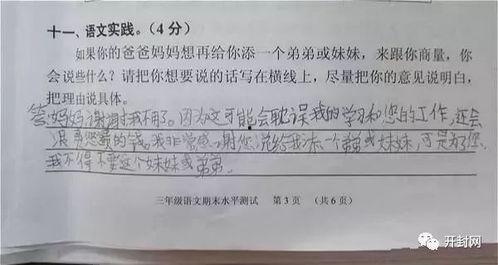 十一、语文实践。（4 分）
如果你的爸爸妈妈想再给你添一个弟弟或妹妹，来跟你商量，你
会说些什么？请把你想要说的话写在横线上，尽量把你的意见说明白，
把理由说具体。
答妈妈谢谢我不用了。因为这可能会耽误我的学习和您的工作，还会
浪费您的钱。我非常感谢您说给我添一个弟弟或妹妹，可是为了您，
我不得不要这个妹妹或弟弟.
三年级语文期末水平测试 第 3 页 （共 6 页）
开封网